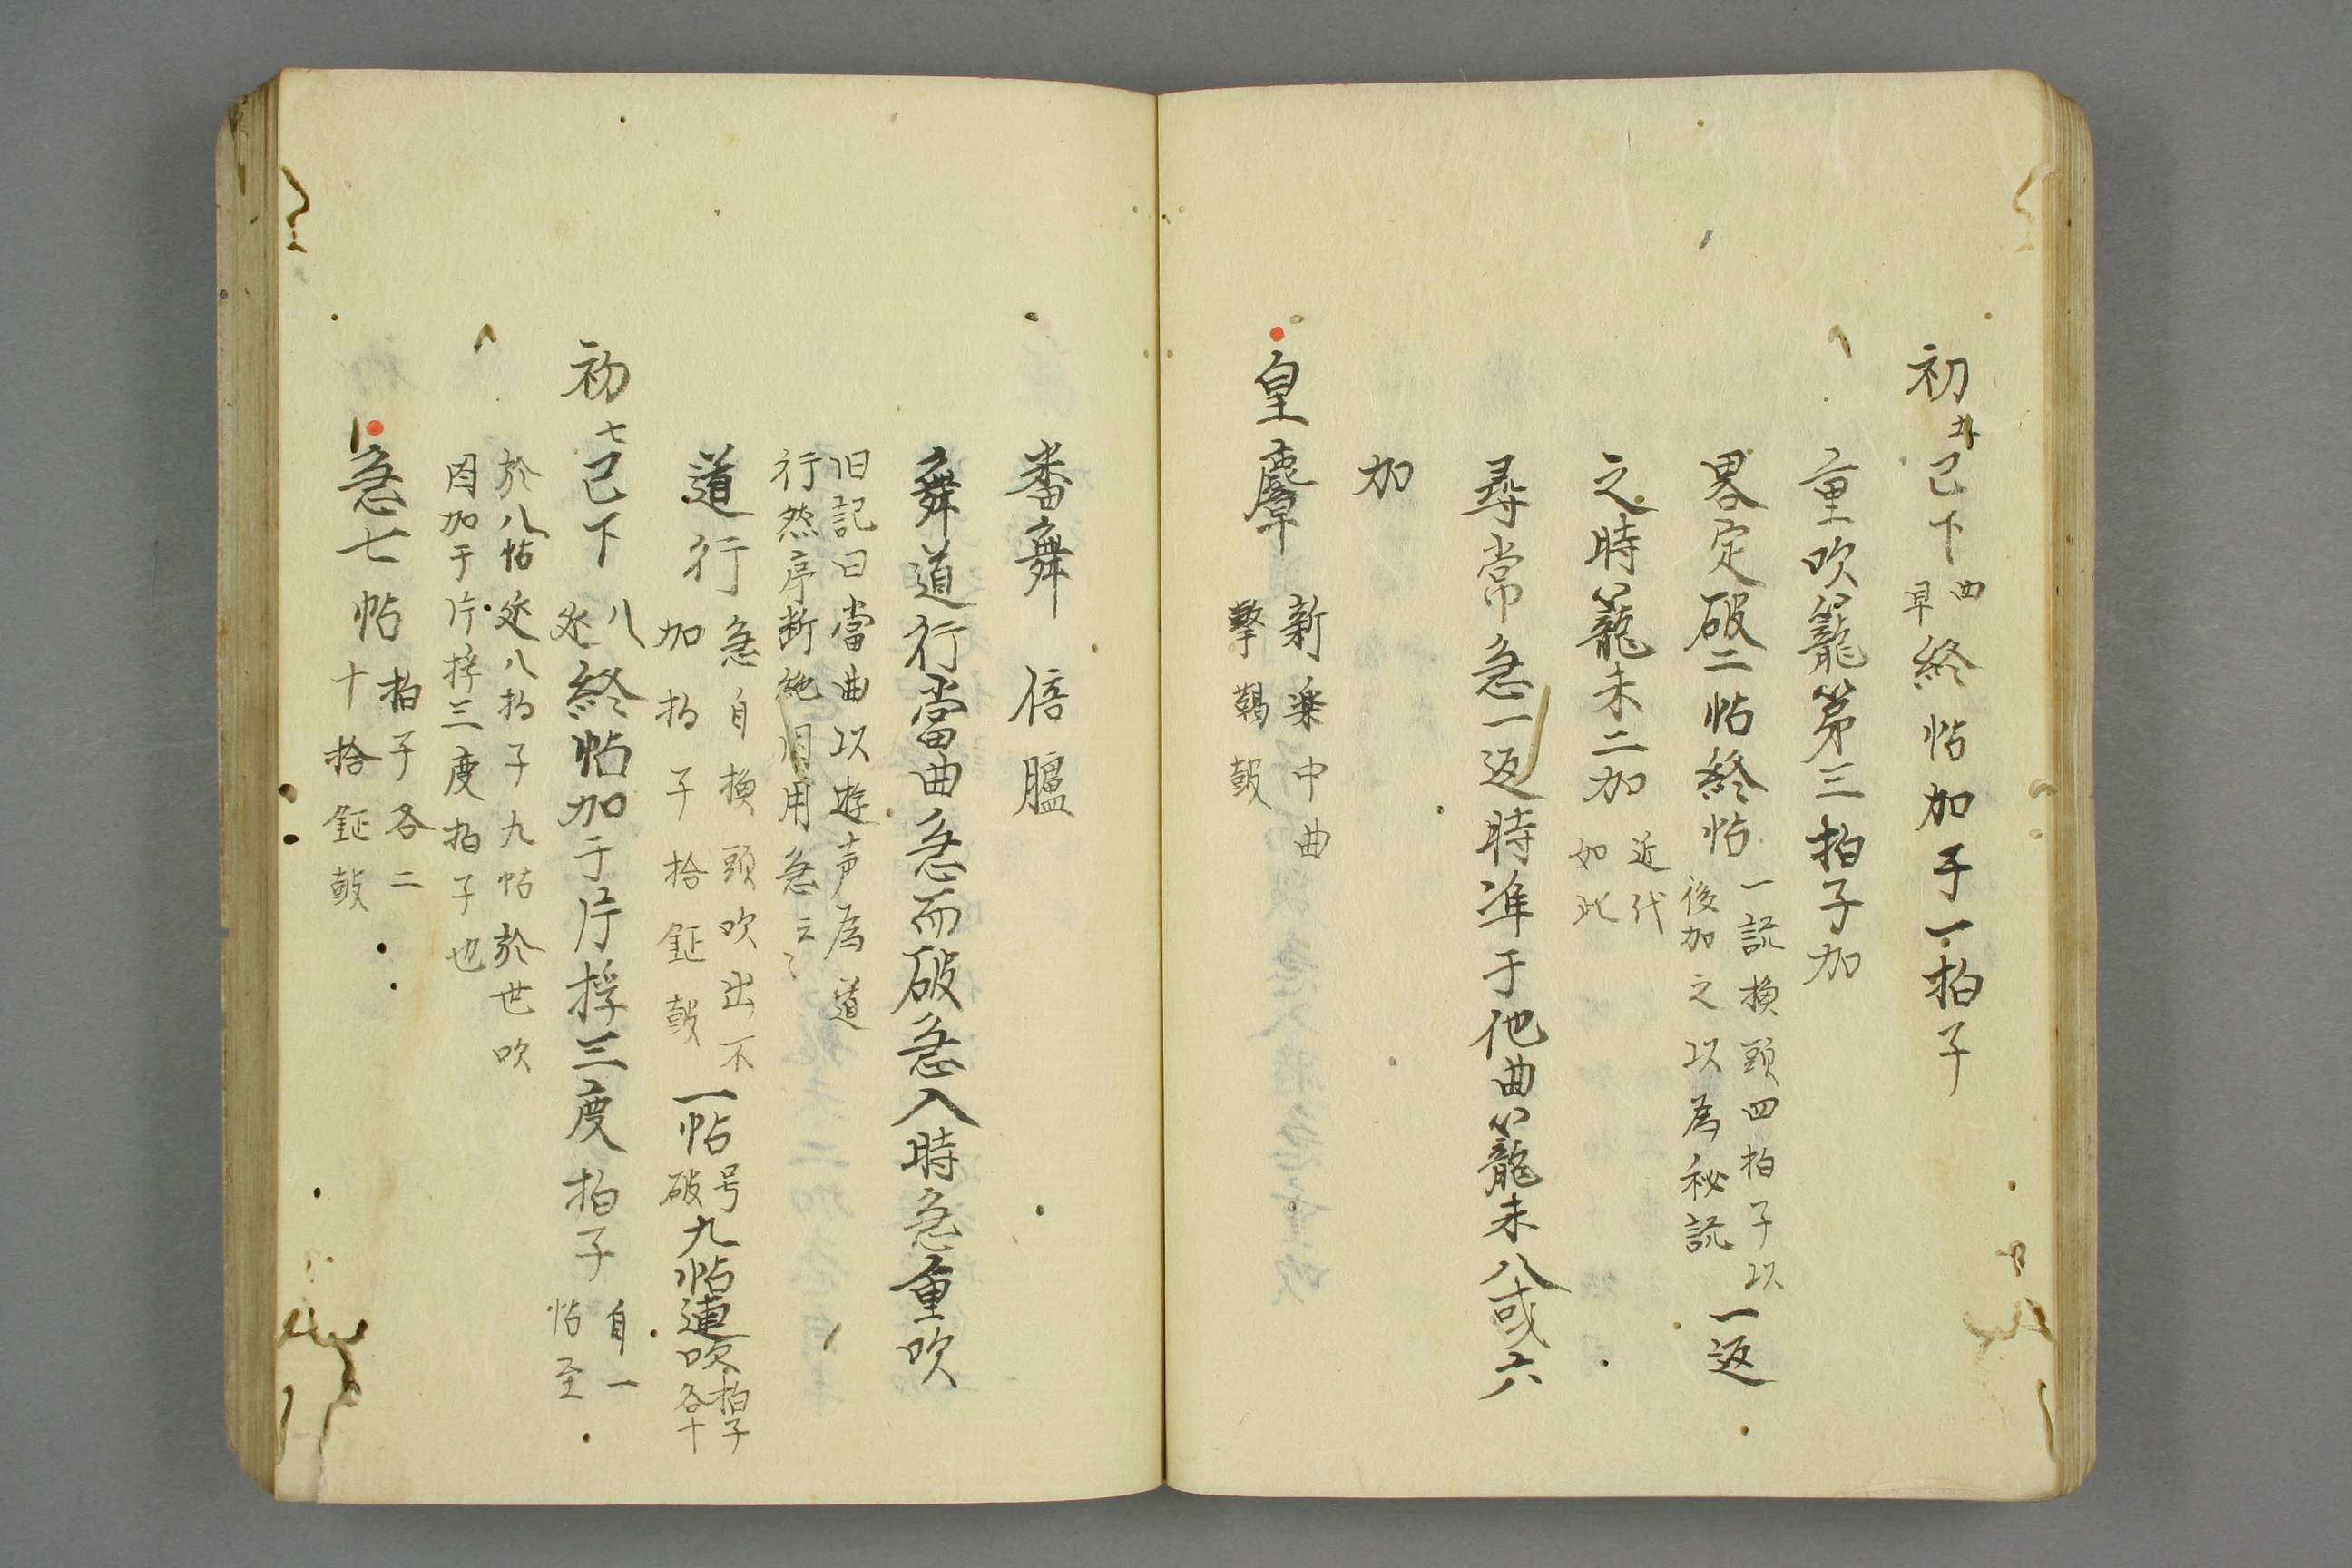 初廿已下曲早終帖加于一拍子
重吹籠第三拍子加
畧定破二帖終帖一説換頭四拍子以後加之以為秘説一返
之時籠未二加近代如此
尋常急一返時准于他曲籠未八或六
加
皇麞新楽中曲擊鞨皷
番舞 倍臚
舞道行當曲急而破急入時急重吹
旧記曰當曲以遊声為道
行然序断絶用急云〻
道行急自換頭吹出不加拍子拾鉦皷一帖号破九帖連吹拍子各十
初七已下八处終帖加于片捊三度拍子自一帖至
於八帖处八拍子九帖於世吹
因加于片捊三度拍子也
急七帖拍子各二十拾鉦皷